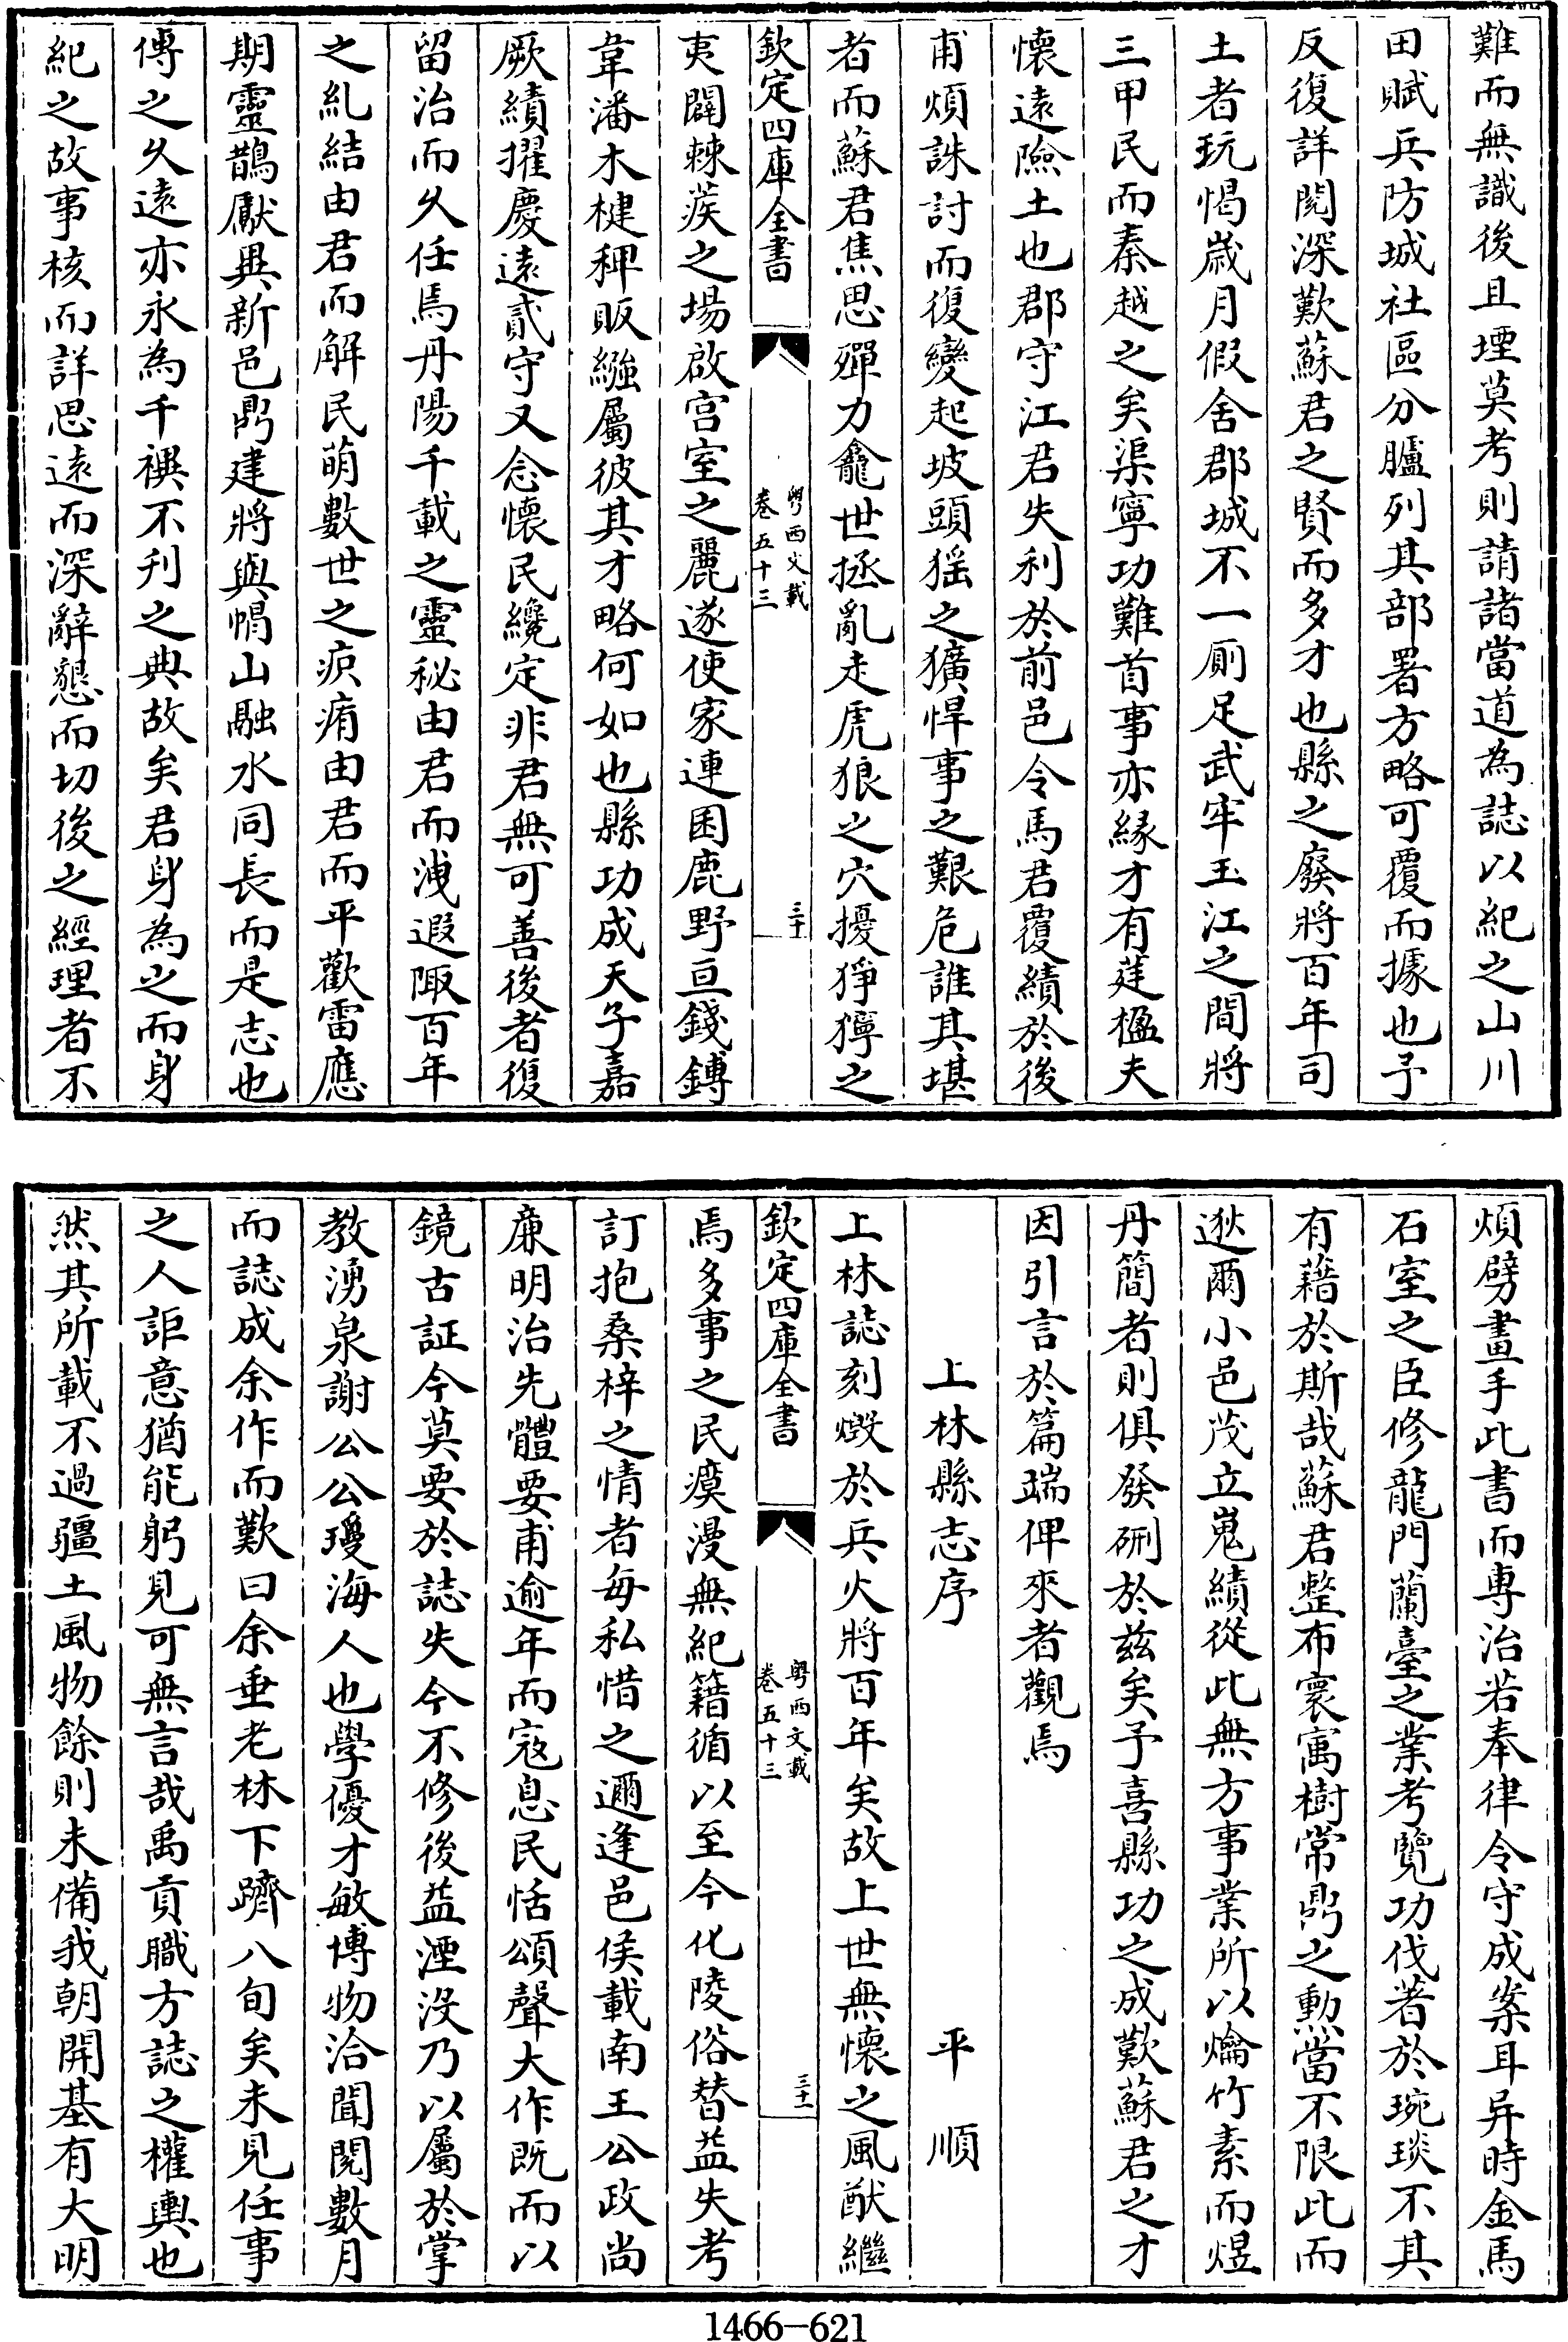 難而無識後且堙莫考則請諸當道為誌以紀之山川
田賦兵防城社區分臚列其部署方略可覆而據也予
反復詳閱深歎蘇君之賢而多才也縣之廢將百年司
土者玩愒歲月假舍郡城不一廁足武牢玉江之間將
三甲民而秦越之矣渠寧功難首事亦緣才有莛楹夫
懷遠險土也郡守江君失利於前邑令馬君覆績於後
甫煩誅討而復變起坡頭猺之獷悍事之艱危誰其堪
者而蘇君焦思殫力龕世拯亂走虎狼之穴擾猙獰之
欽定四庫全書
粵西文載
卷五十三
三十
夷闢棘蒺之場啟宮室之麗遂使家連囷鹿野亘錢鎛
韋潘木楗稗販繈屬彼其才略何如也縣功成天子嘉
厥績擢慶遠貳守又念懷民纔定非君無可善後者復
留治而久任焉丹陽千載之靈秘由君而洩遐陬百年
之糺結由君而解民萌數世之疻痏由君而平歡雷應
期靈鵲獻異新邑鼎建將與幘山融水同長而是志也
傳之久遠亦永為千禩不刋之典故矣君身為之而身
紀之故事核而詳思遠而深辭懇而切後之經理者不
煩劈畫手此書而專治若奉律令守成案耳异時金馬
石室之臣修龍門蘭臺之業考覽功伐著於琬琰不其
有藉於斯哉蘇君整布寰寓樹常鼎之勳當不限此而
逖爾小邑茂立嵬績從此無方事業所以爚竹素而煜
丹簡者則俱發硎於兹矣予喜縣功之成歎蘇君之才
因引言於篇端俾來者觀焉
上林縣志序 平順
上林誌刻燬於兵火將百年矣故上世無懷之風猷繼
欽定四庫全書
粵西文載
卷五十三
三十一
焉多事之民瘼漫無紀籍循以至今化陵俗替益失考
訂抱桑梓之情者每私惜之邇逢邑侯載南王公政尚
廉明治先體要甫逾年而寇息民恬頌聲大作既而以
鏡古証今莫要於誌失今不修後益湮沒乃以屬於掌
教湧泉謝公公瓊海人也學優才敏博物洽聞閱數月
而誌成余作而歎曰余垂老林下躋八旬矣未見任事
之人詎意猶能躬見可無言哉禹貢職方誌之權輿也
然其所載不過疆土風物餘則未備我朝開基有大明
1466-621